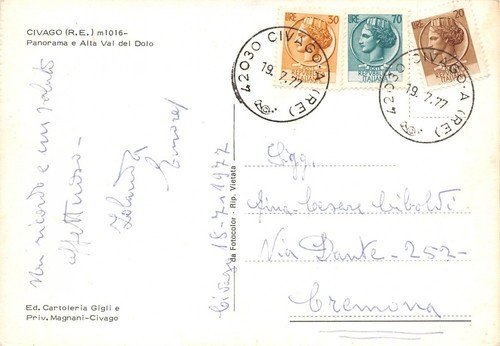 CIVAGO (R.E.) m1016-
Panorama e Alta Val del Dolo
LIRE 30
LIRE 70
LIRE 20
42030 CIVAGO·A (RE)
19.7.77
42030 CIVAGO·A (RE)
19.7.77
un ricordo e un saluto
affettuoso-
Civago 18-7-1977
da Fotocolor - Rip. Vietata
Cesare
Via Dante - 252-
Cremona
Ed. Cartoleria Gigli e
Priv. Magnani-Civago